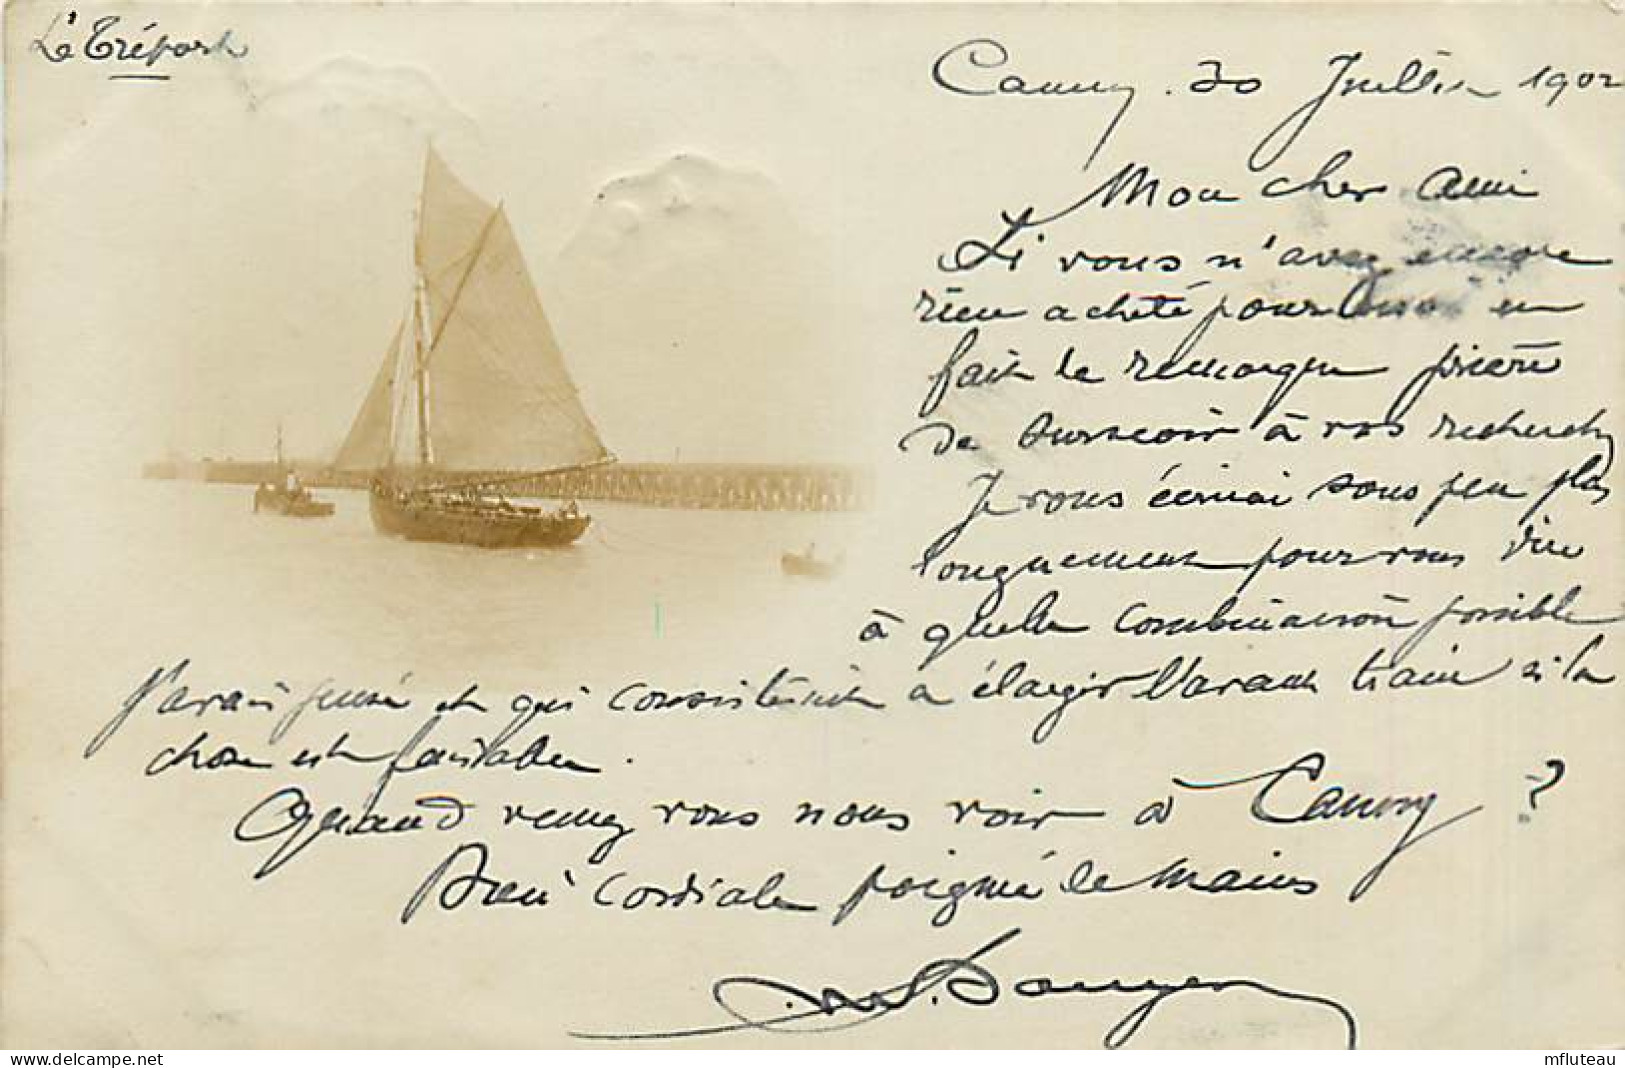 Le Tréport
Canny. 30 Juillet 1902
Mon cher Ami
Si vous n'avez encore
rien acheté pour moi en
fait de remorque prière
de surseoir à vos recherches
Je vous écrirai sous peu plus
longuement pour vous dire
à quelle combinaison possible
j'avais pensé et qui consisterait à élargir l'avant train si la
chose est faisable.
Quand venez vous nous voir à Canny ?
Bien cordiale poignée de mains
delcampe.net
mfluteau